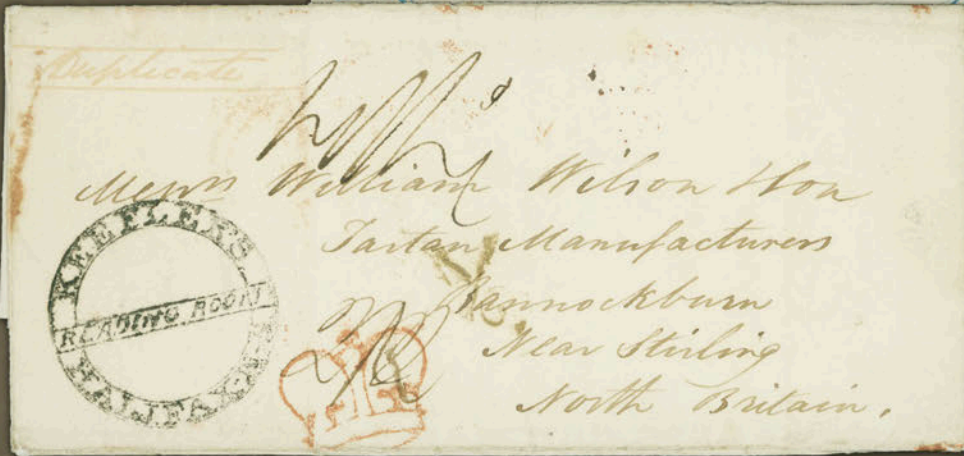 Duplicate
Messrs William Wilson & Son
Tartan Manufacturers
Bannockburn
Near Stirling
North Britain.
KEEFLER'S
READING ROOM
HALIFAX, N.S.